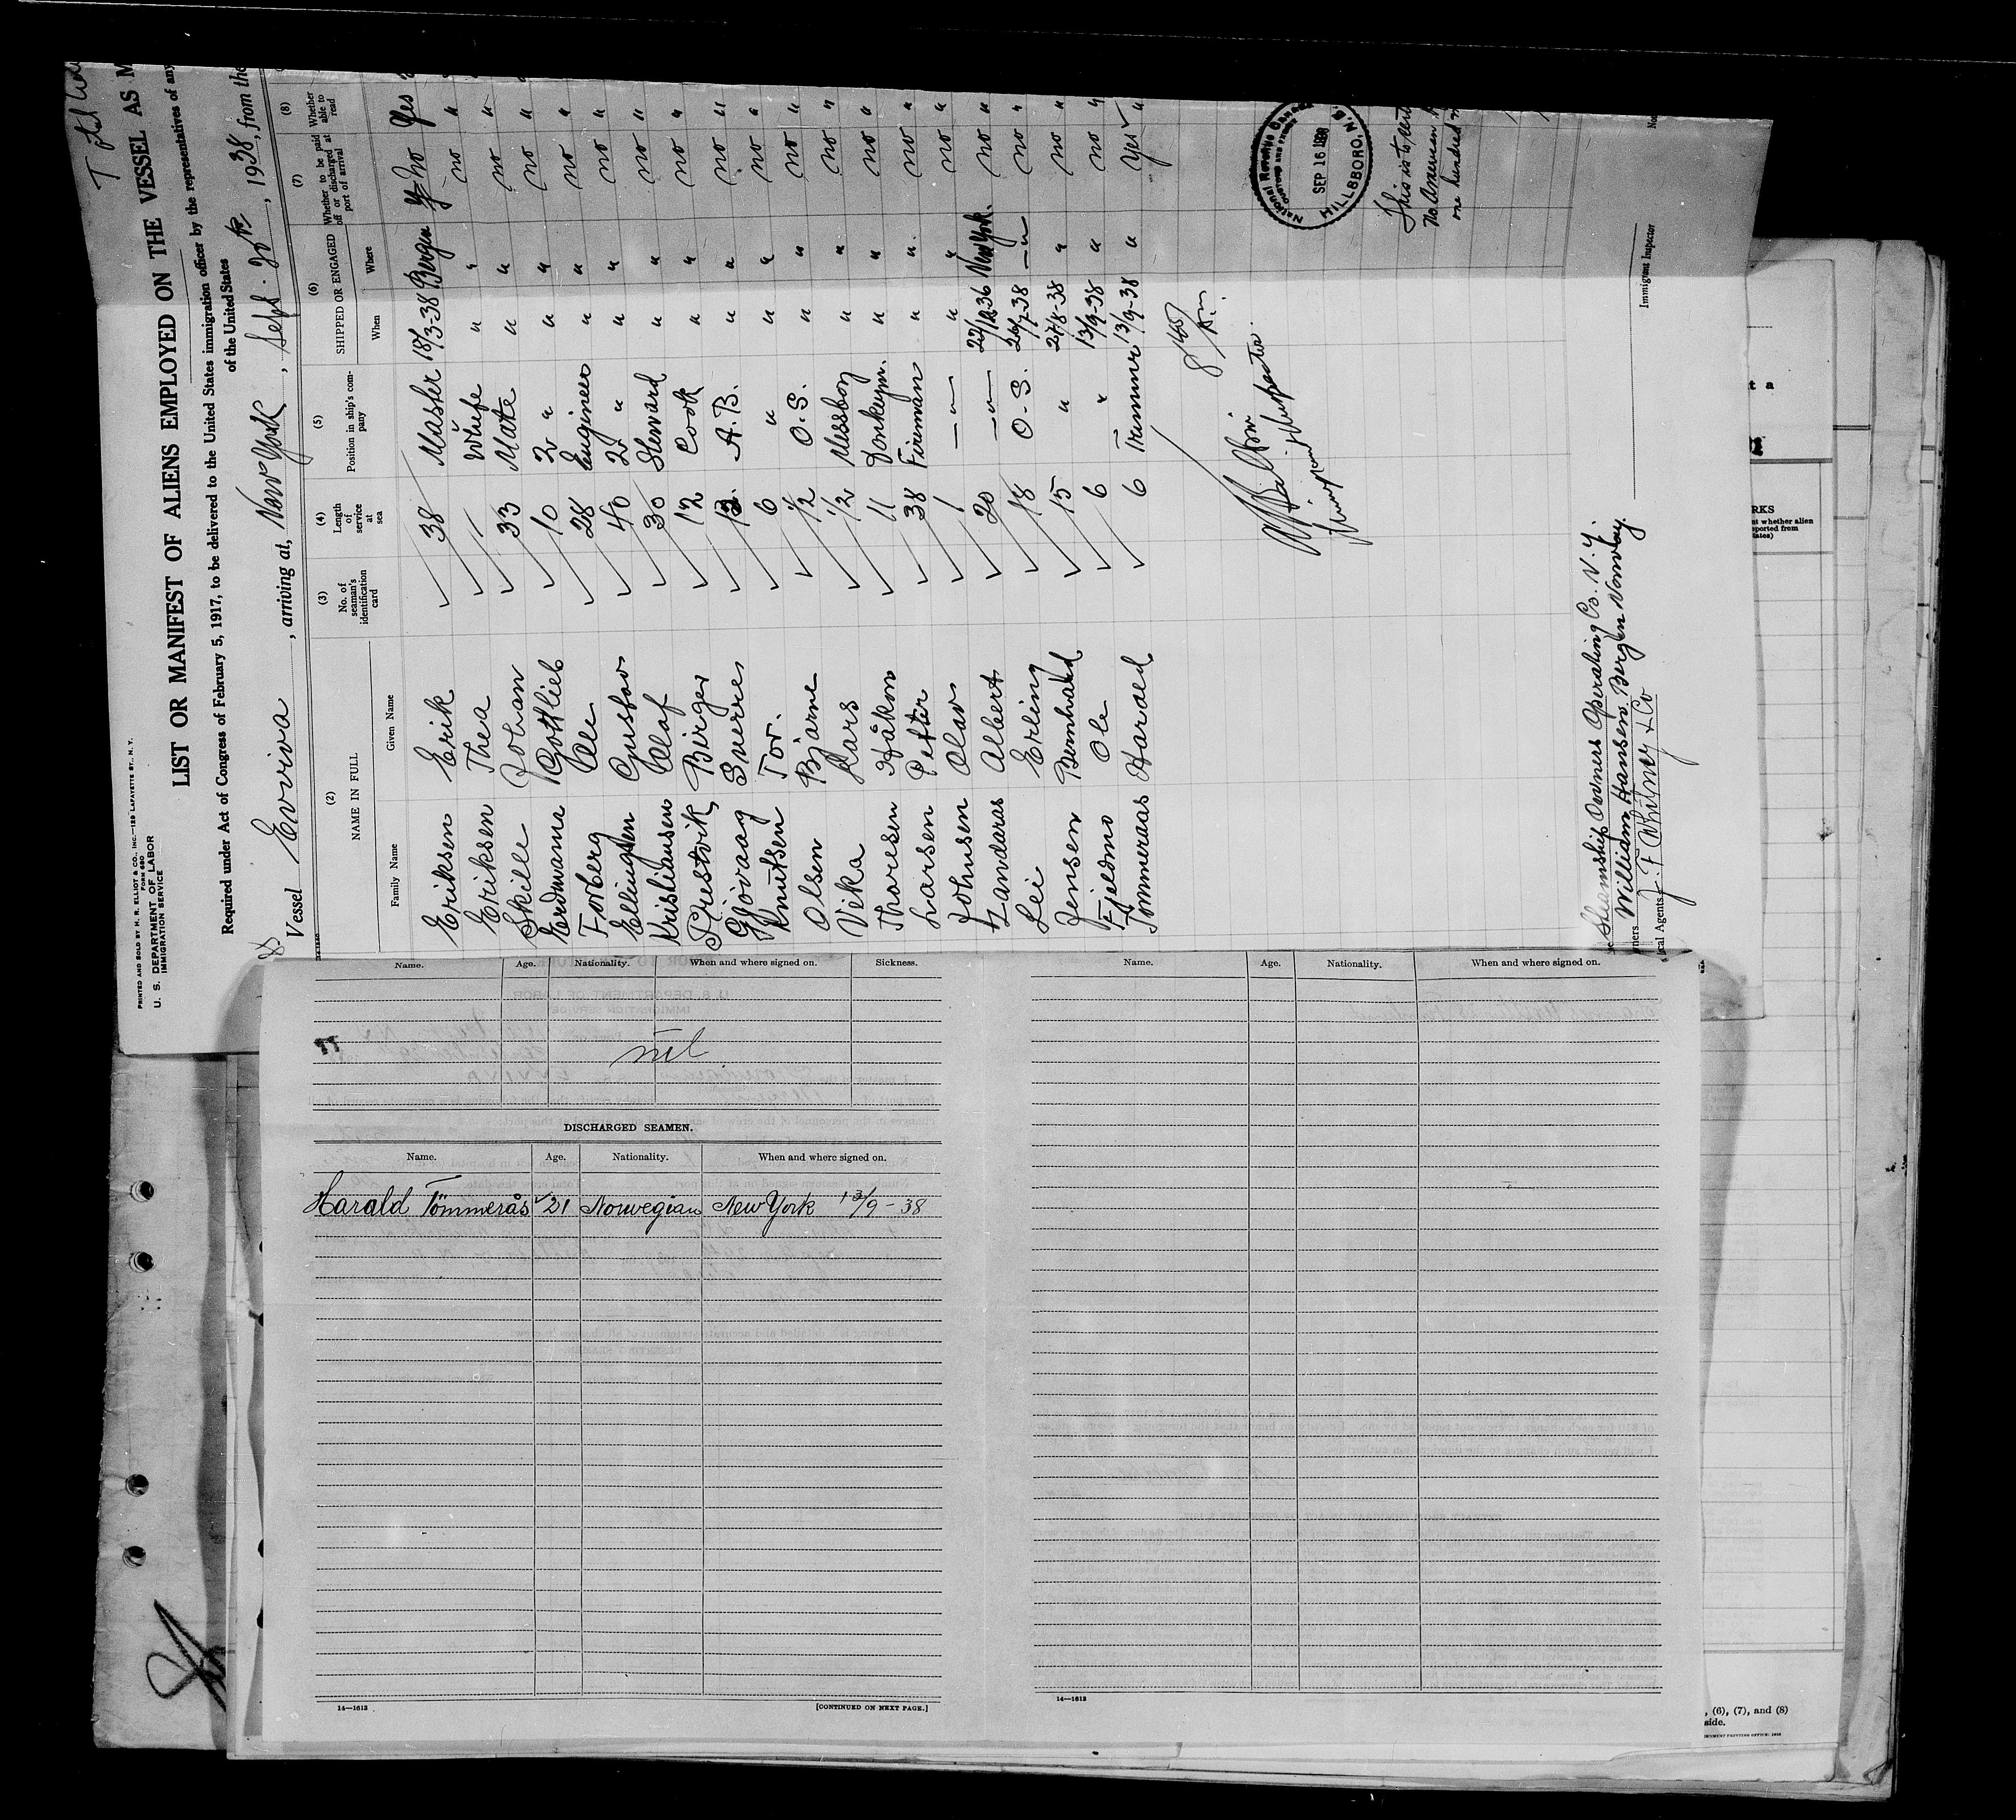 PRINTED AND SOLD BY H. R. ELLIOT & CO., INC.—129 LAFAYETTE ST., N. Y.
FORM 680
U. S. DEPARTMENT OF LABOR
IMMIGRATION SERVICE
LIST OR MANIFEST OF ALIENS EMPLOYED ON THE VESSEL AS M
Required under Act of Congress of February 5, 1917, to be delivered to the United States immigration officer by the representatives of any
of the United States
Vessel Evviva, arriving at, New York, Sept. 20th, 1938, from the
(2) NAME IN FULL
Family Name Given Name
(3) No. of seaman's identification card
(4) Length of service at sea
(5) Position in ship's company
(6) SHIPPED OR ENGAGED
When Where
(7) Whether to be paid off or discharged at port of arrival
(8) Whether able to read
Eriksen Erik 38 Master 18/3-38 Bergen No Yes
Eriksen Thea Wife " " no "
Skille Johan 33 Mate " " no "
Erdmann Gottlieb 10 2 " " " no "
Forberg Ole 28 Engineer " " no "
Ellingsen Gustav 40 2 " " " no "
Kristiansen Olaf 30 Steward " " no "
Prestvik Birger 12 Cook " " no "
Gjøvaag Sverre A.B. " " no "
Knutsen Tor. 6 " " " no "
Olsen Bjarne 1/2 O.S. " " no "
Vika Lars 1/2 Messboy " " no "
Thoresen Håkon 11 Donkeym. " " no "
Larsen Petter 38 Fireman " " no "
Johnsen Olav 1 —"— " " no "
Albert 20 —"— 22/12-36 New York. no "
Lei Erling 18 O.S. 26/7-38 —"— no "
Jensen Bernhard 15 " 27/8-38 " no "
Fjeldmo Ole 6 " 13/9-38 " no "
Tømmeraas Harald 6 Trimmer 13/9-38 " Yes "
National Revenue Canada
SEP 16 1938
HILLSBORO, N.B.
This is to
No American
one hundred
Immigrant Inspector
Steamship Owners Operating Co. N.Y.
William Hansen. Bergen Norway.
J. F. Whitney & Co
Name. Age. Nationality. When and where signed on. Sickness.
nil
DISCHARGED SEAMEN.
Name. Age. Nationality. When and where signed on.
Harald Tömmerås 21 Norwegian New York 13/9-38
14—1613
[CONTINUED ON NEXT PAGE.]
Name. Age. Nationality. When and where signed on.
14—1613
RKS
whether alien
ported from
, (6), (7), and (8)
side.